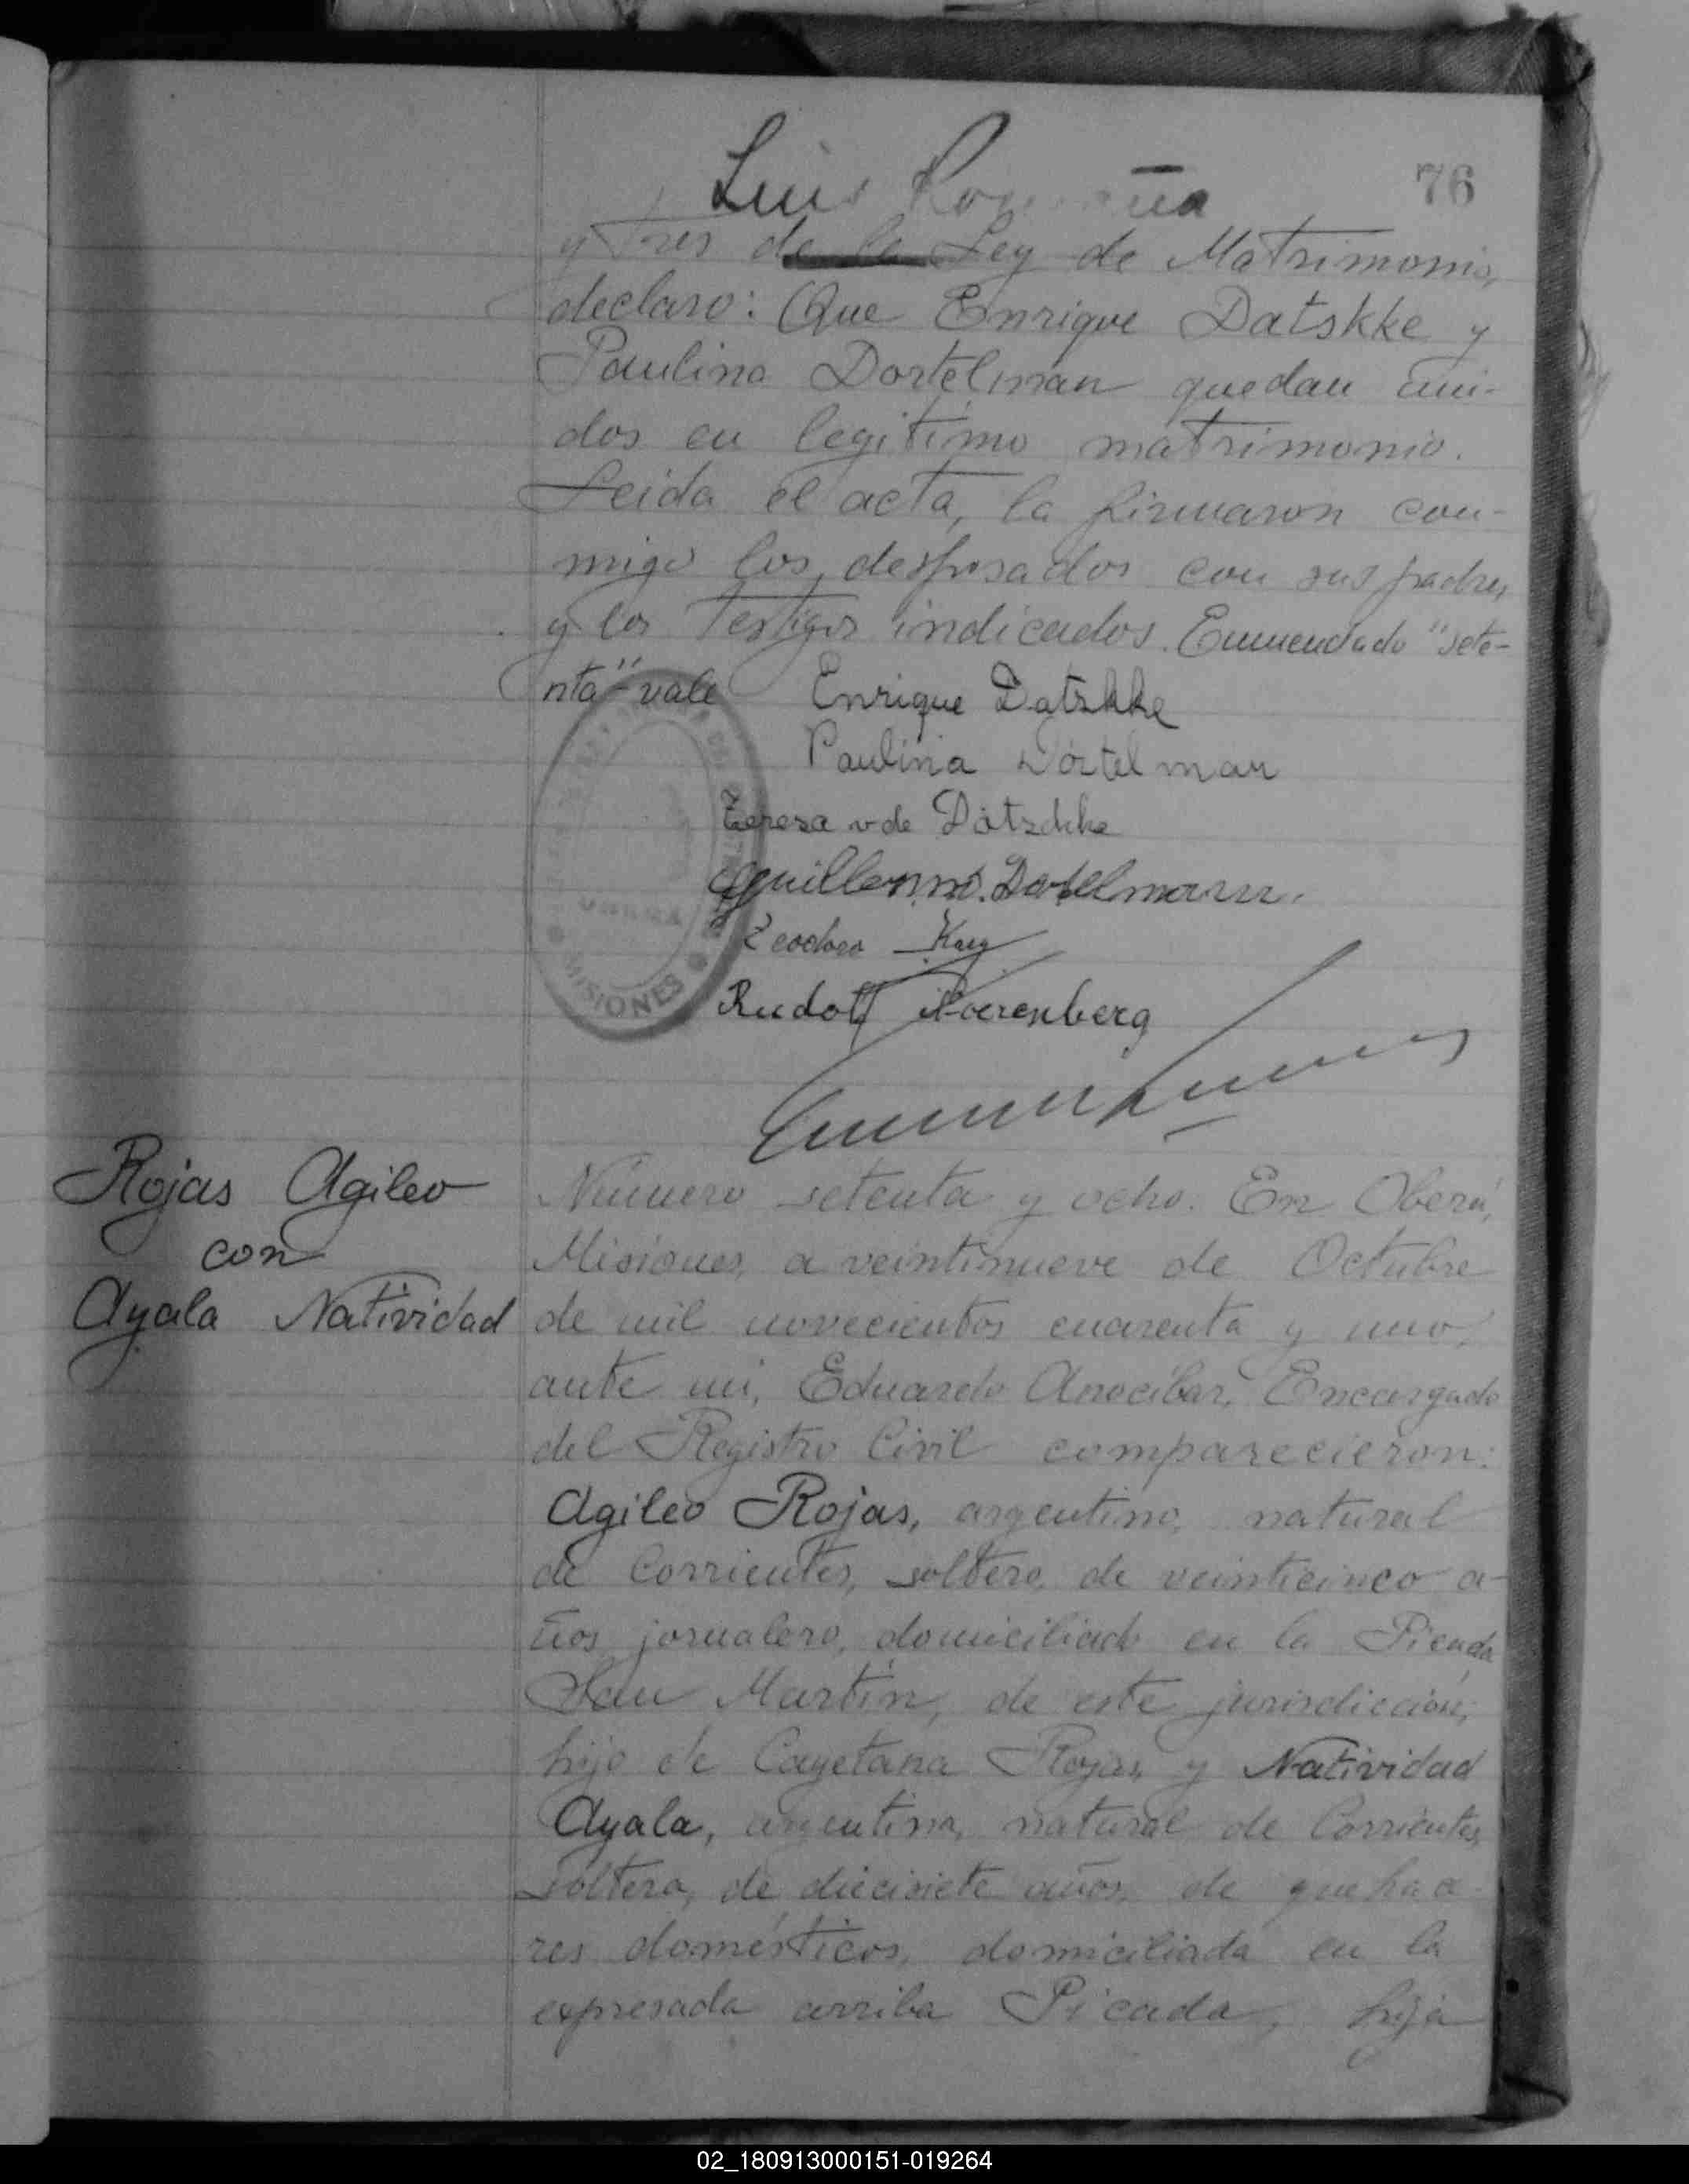 76
Luis
y tres de la Ley de Matrimonio,
declaro: Que Enrique Datskke y
Paulina Dortelman quedan uni-
dos en legítimo matrimonio.
Leida el acta, la firmaron con-
migo los desposados con sus padres
y los testigos indicados. Enmendado "sete-
nta"-vale
Enrique Datskke
Paulina Dortelman
Teresa vde Datzchke
Guillermo Dortelmann.
Teodoro
Rudolf
MISIONES
Rojas Agileo
con
Ayala Natividad
Número setenta y ocho. En Oberá,
Misiones, a veintinueve de Octubre
de mil novecientos cuarenta y uno,
ante mi, Eduardo Arocibar, Encargado
del Registro Civil comparecieron:
Agileo Rojas, argentino, natural
de Corrientes, soltero, de veinticinco a-
ños, jornalero, domiciliado en la Picada
San Martín, de este jurisdicción,
hijo de Cayetana Rojas, y Natividad
Ayala, argentina, natural de Corrientes,
soltera, de diecisiete años, de quehace-
res domésticos, domiciliada en la
expresada arriba Picada, hija
02_180913000151-019264